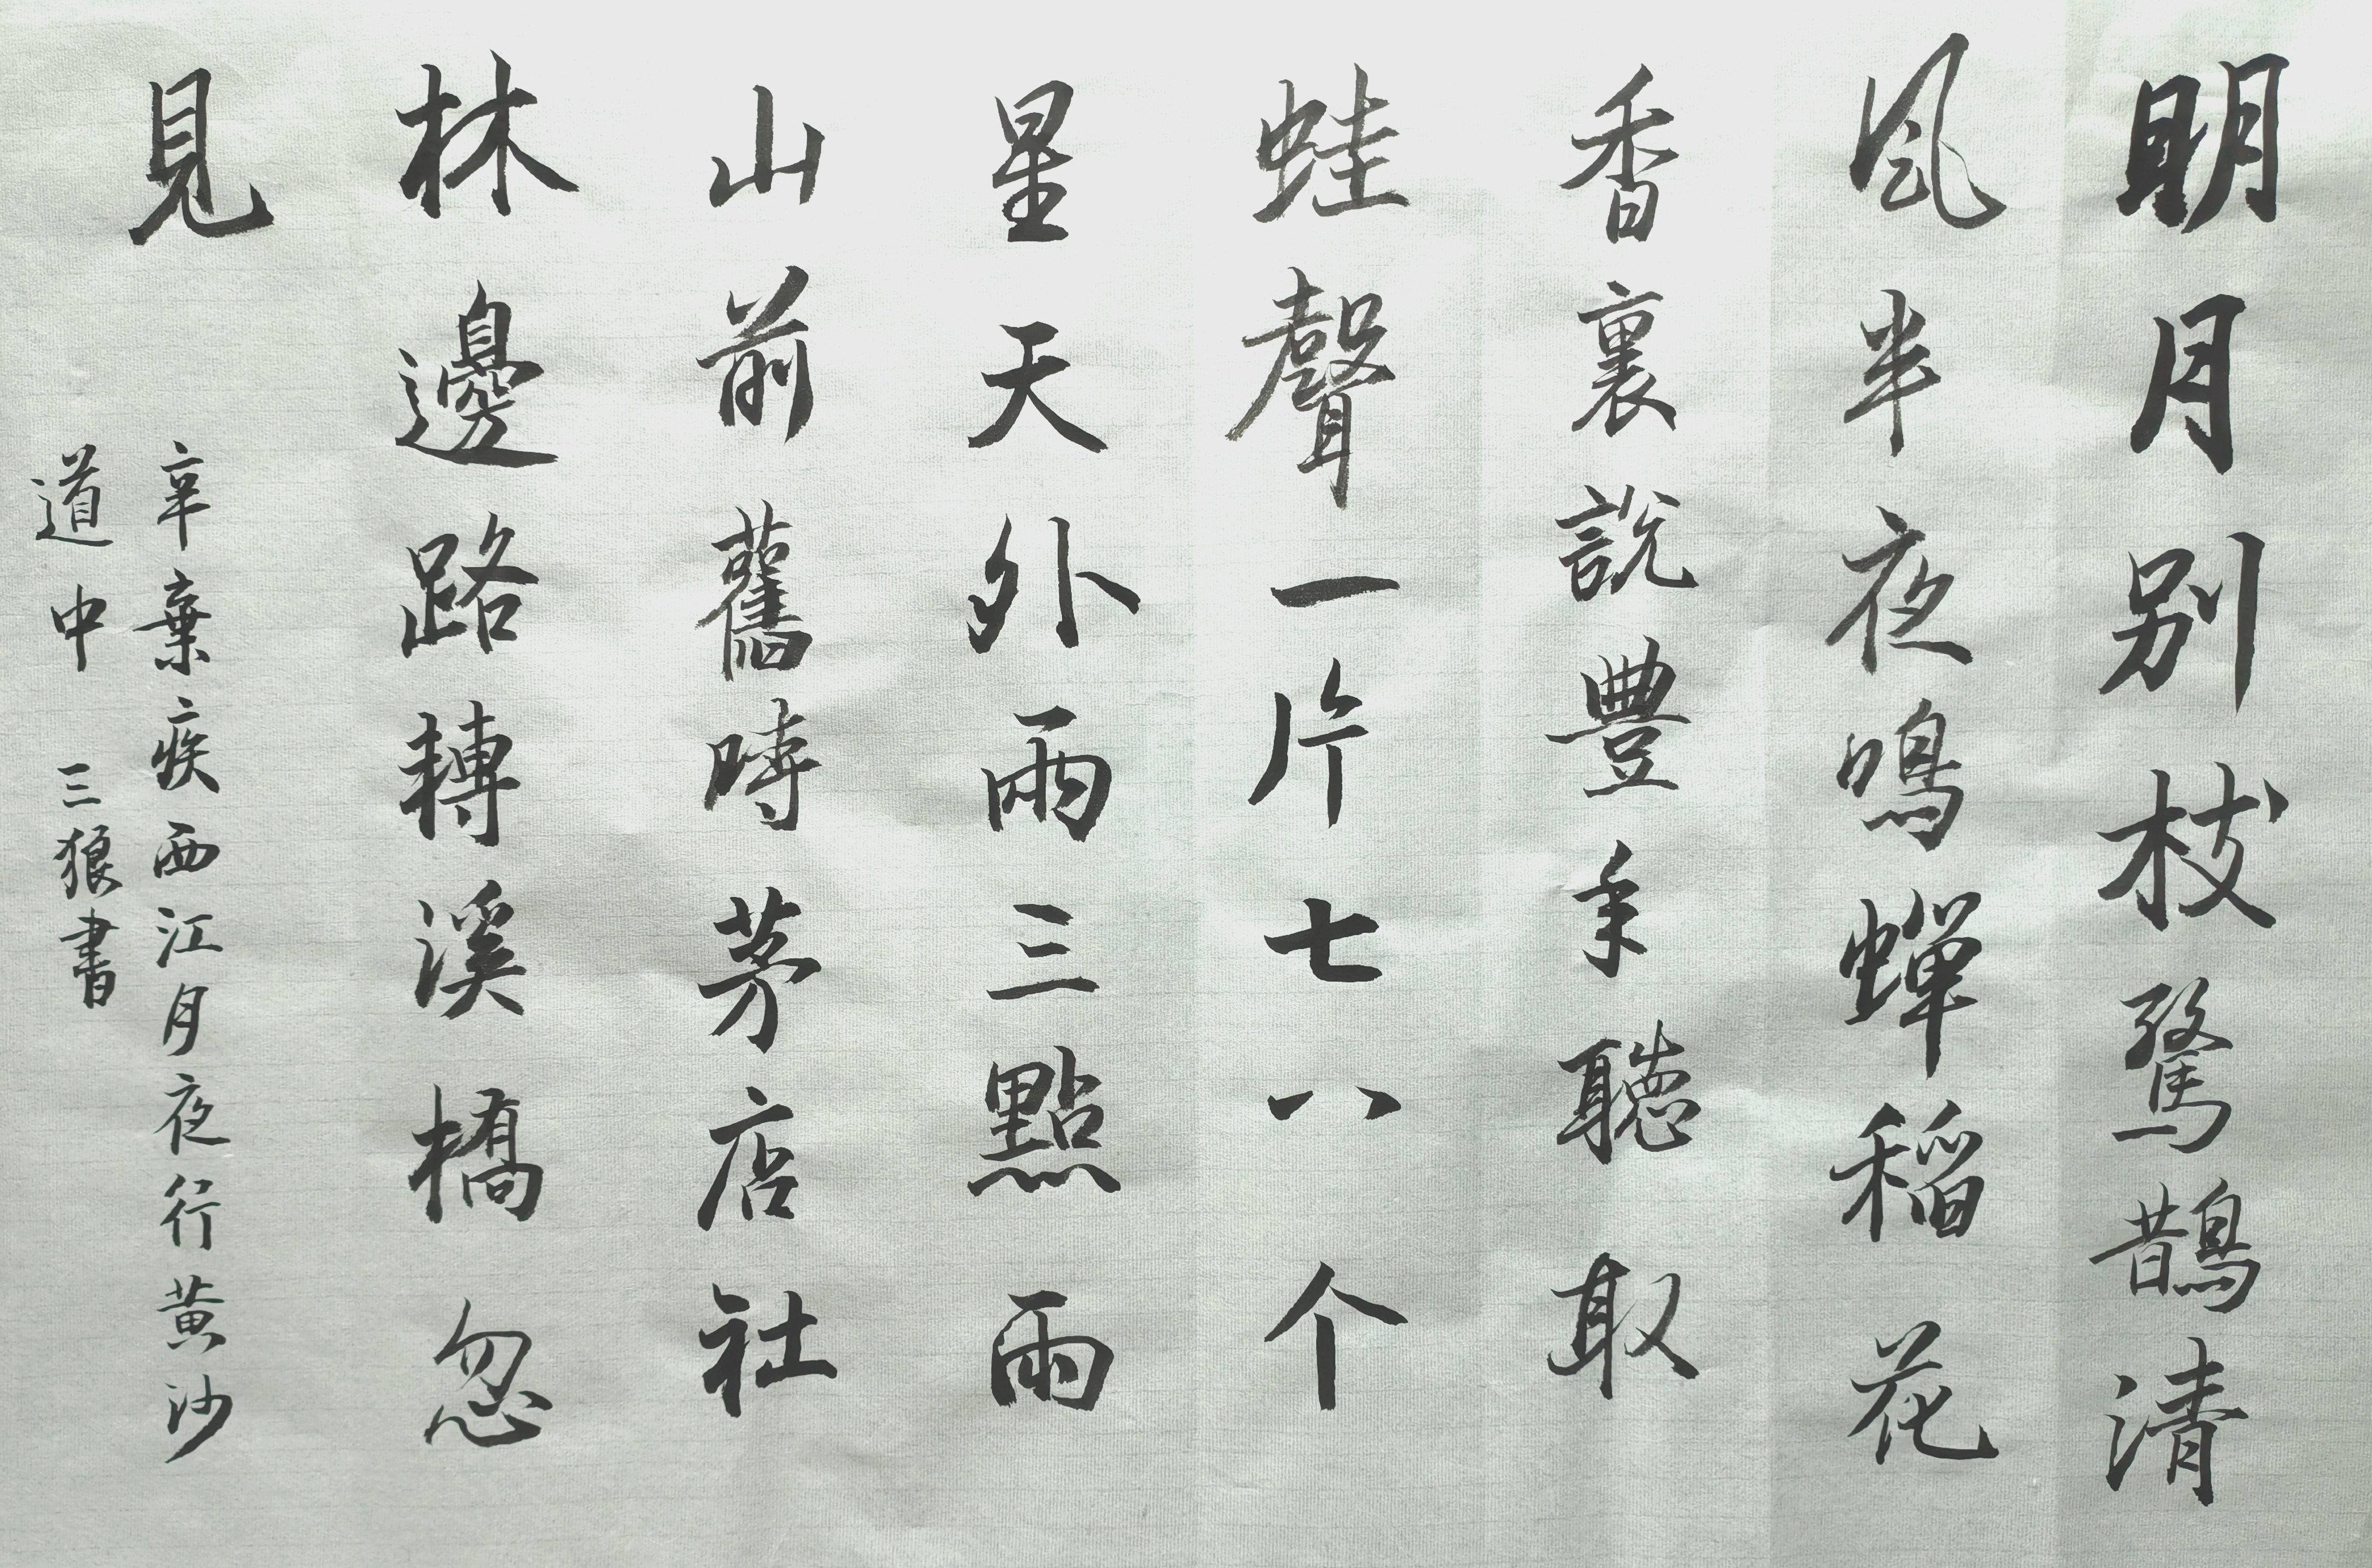 明月别枝驚鵲清
風半夜鳴蟬稻花
香裏說豐年聽取
蛙聲一片七八个
星天外雨三點雨
山前舊時茅店社
林邊路轉溪橋忽
見
辛棄疾西江月夜行黃沙
道中 三狼書